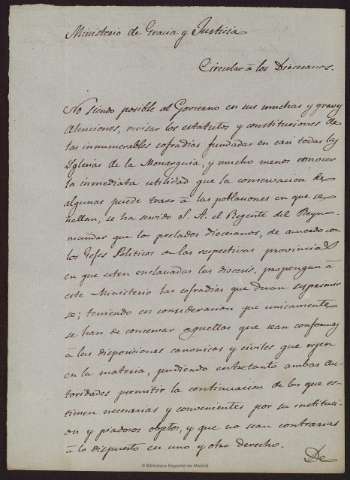 Ministerio de Gracia y Justicia
Circular à los Diocesanos.
No siendo posible al Govierno en sus muchas y graves
atenciones, revisar los estatutos y constituciones de
las innumerables cofradias fundadas en casi todas las
Iglesias de la Monarquia, y mucho menos conocer
la inmediata utilidad que la conservacion de
algunas puede traer à las poblaciones en que se
hallan, se ha servido el S. A. el Regente del Reyno
mandar que los prelados diocesanos, de acuerdo con
los Gefes Politicos de las respectivas provincias
en que esten enclavadas las diocesis, propongan à
este Ministerio las cofradias que deban suprimir
se; teniendo en consideracion que unicamente
se han de conservar aquellas que sean conformes
à las disposiciones canonicas y civiles que rijen
en la materia, pudiendo entretanto ambas au
toridades permitir la continuacion de las que es
timen necesarias y convenientes por su institucio
on y piadoso objeto, y que no sean contrarias
à lo dispuesto en uno y otro derecho.
De
© Biblioteca Regional de Madrid